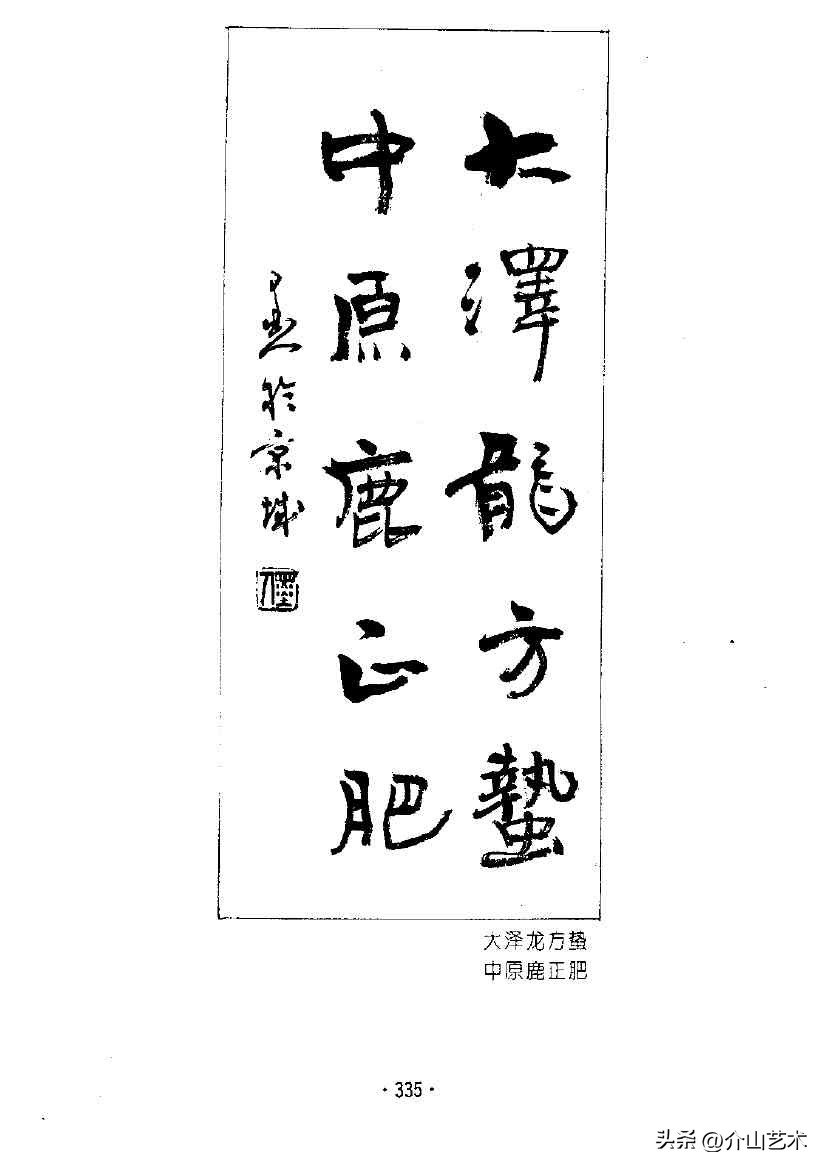 大澤龍方蟄
中原鹿正肥
於京城
大泽龙方蛰
中原鹿正肥
·335·
头条 @介山艺术